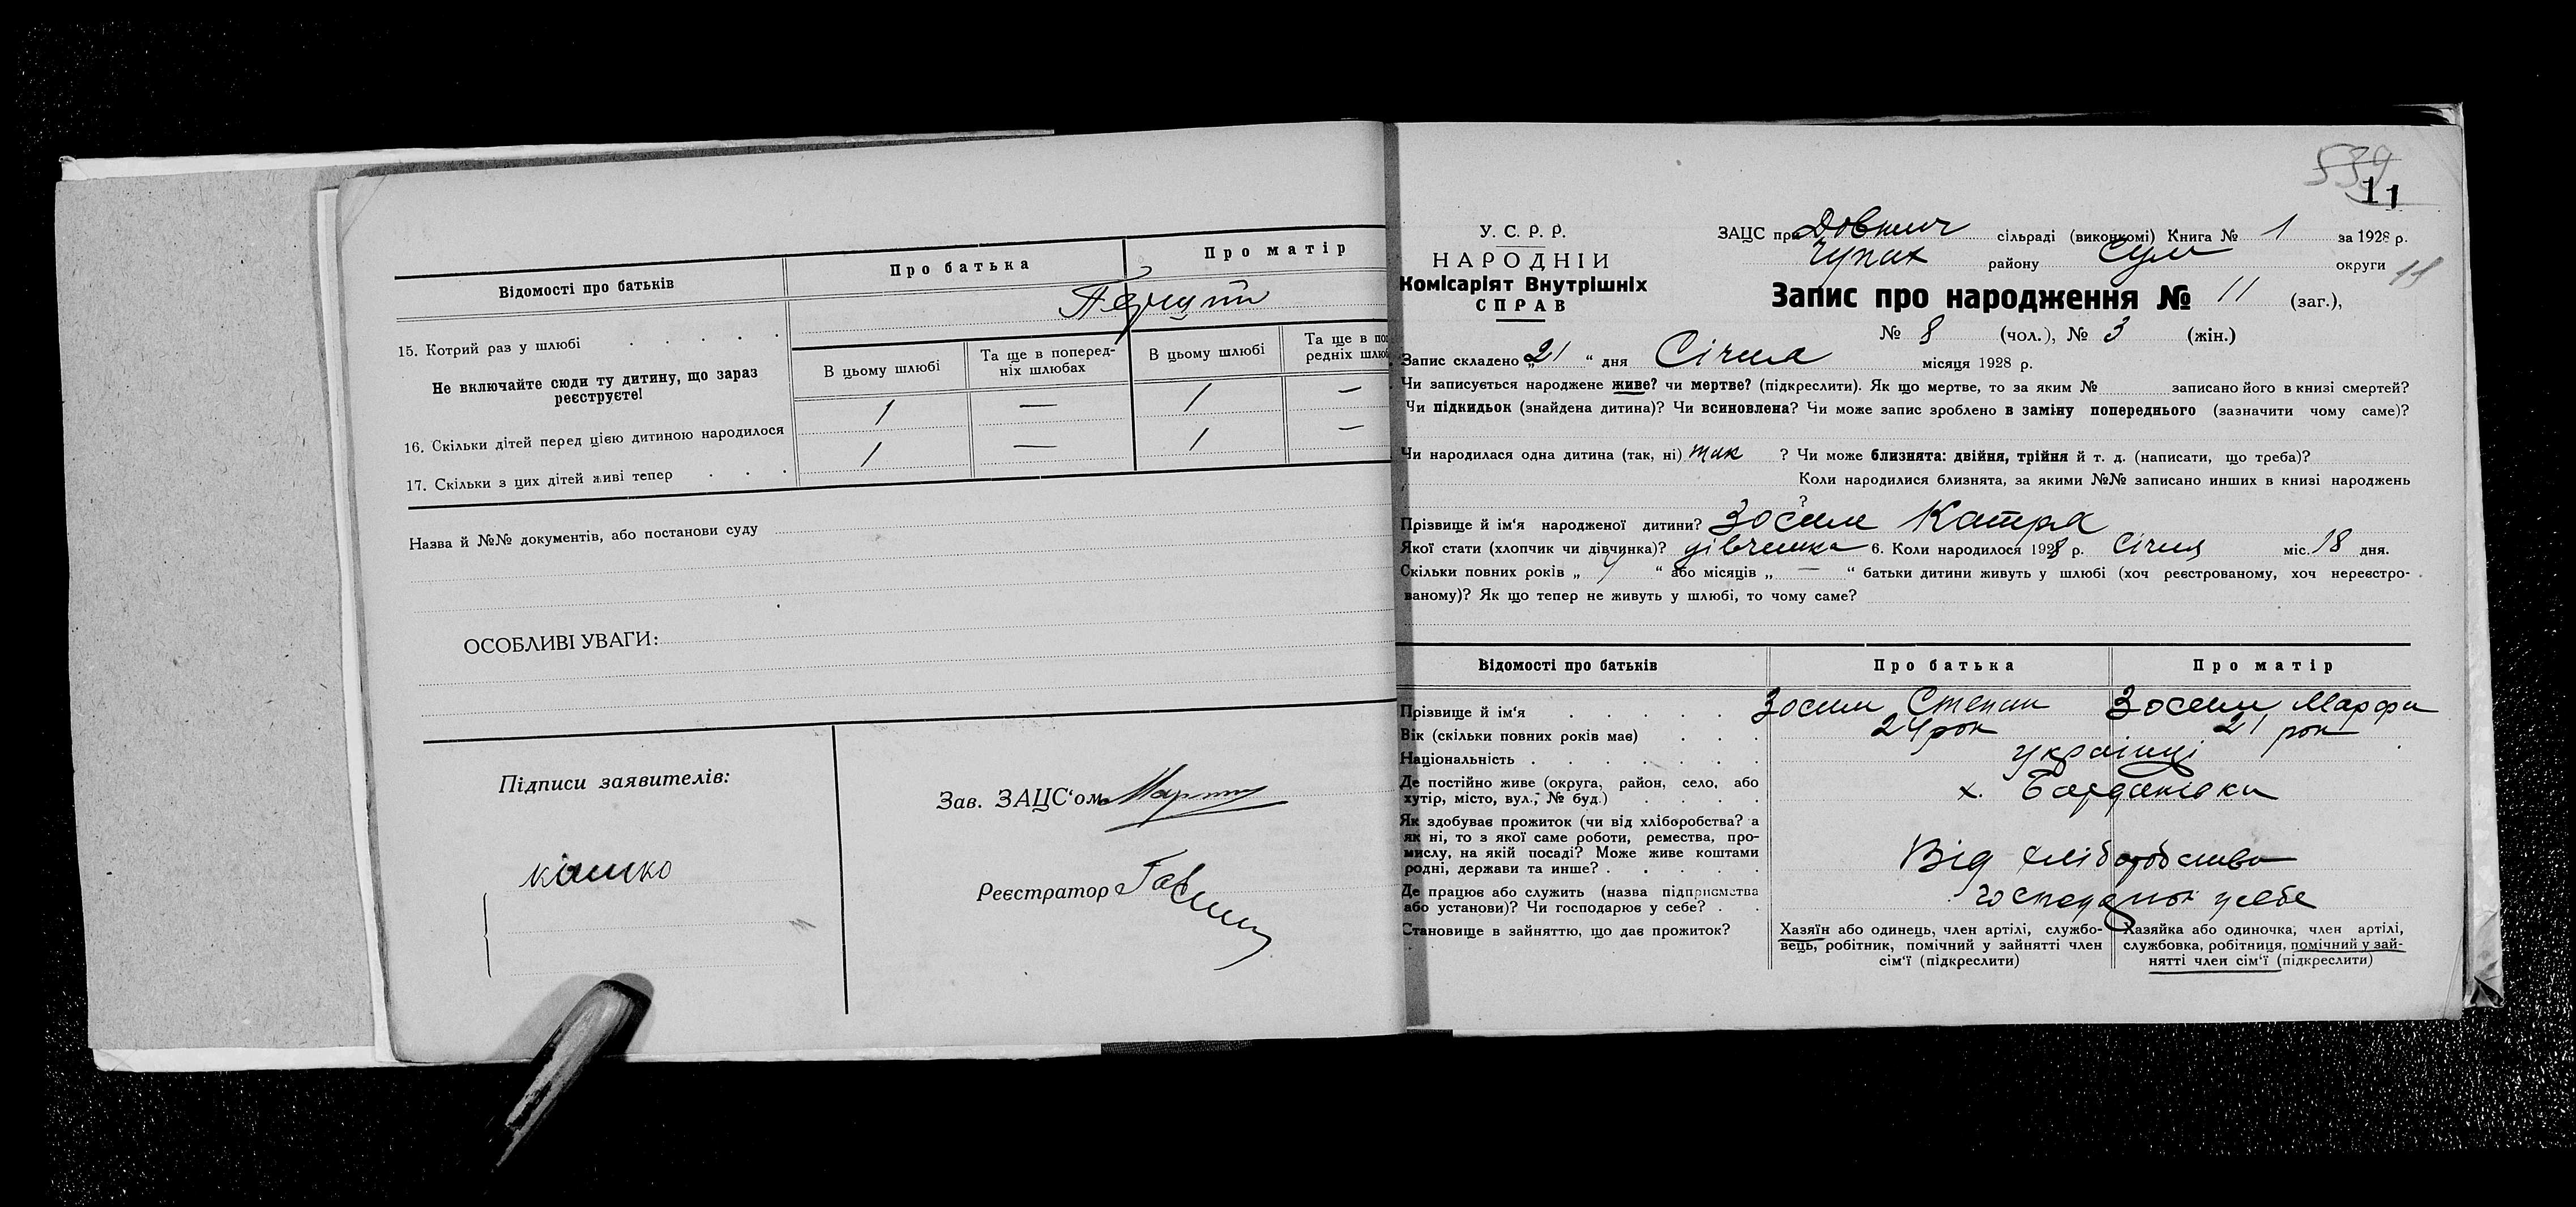 Відомості про батьків
Про батька
Про матір
15. Котрий раз у шлюбі
Не включайте сюди ту дитину, що зараз
реєструєте!
В цьому шлюбі
Та ще в поперед-
ніх шлюбах
В цьому шлюбі
Та ще в по
редніх шлю
16. Скільки дітей перед цією дитиною народилося
1 — 1 —
17. Скільки з цих дітей живі тепер
1 — 1 —
Назва й №№ документів, або постанови суду
ОСОБЛИВІ УВАГИ:
Підписи заявителів:
Зав. ЗАЦС'ом
Реєстратор
539
11
У. С. Р. Р.
НАРОДНІЙ
Комісаріят Внутрішніх
СПРАВ
ЗАЦС при Довжич сільраді (виконкомі) Книга № 1 за 1928 р.
Чупах району Сум округи 11
Запис про народження № 11 (заг.),
№ 8 (чол.), № 3 (жін.)
Запис складено „21“ дня Січня місяця 1928 р.
Чи записується народжене живе? чи мертве? (підкреслити). Як що мертве, то за яким № записано його в книзі смертей?
Чи підкидьок (знайдена дитина)? Чи всиновлена? Чи може запис зроблено в заміну попереднього (зазначити чому саме)?
Чи народилася одна дитина (так, ні) так ? Чи може близнята: двійня, трійня й т. д. (написати, що треба)?
Коли народилися близнята, за якими №№ записано инших в книзі народжень
?
Прізвище й ім'я народженої дитини? Зосим Катря
Якої стати (хлопчик чи дівчинка)? дівчинка 6. Коли народилося 1928 р. Січня міс. 18 дня.
Скільки повних років „ “ або місяців „ — “ батьки дитини живуть у шлюбі (хоч реєстрованому, хоч нереєстро-
ваному)? Як що тепер не живуть у шлюбі, то чому саме?
Відомості про батьків
Про батька
Про матір
Прізвище й ім'я
Зосим Степан
Зосим Марфа
Вік (скільки повних років має)
24 рок
21 рок
Національність
українці
Де постійно живе (округа, район, село, або
хутір, місто, вул., № буд.)
х.
Як здобуває прожиток (чи від хліборобства? а
як ні, то з якої саме роботи, ремества, про-
мислу, на якій посаді? Може живе коштами
родні, держави та инше?
Від хліборобства
Де працює або служить (назва підприємства
або установи)? Чи господарює у себе?
у себе
Становище в зайняттю, що дає прожиток?
Хазяїн або одинець, член артілі, службо-
вець, робітник, помічний у зайнятті член
сім'ї (підкреслити)
Хазяйка або одиночка, член артілі,
службовка, робітниця, помічний у зай-
нятті член сім'ї (підкреслити)